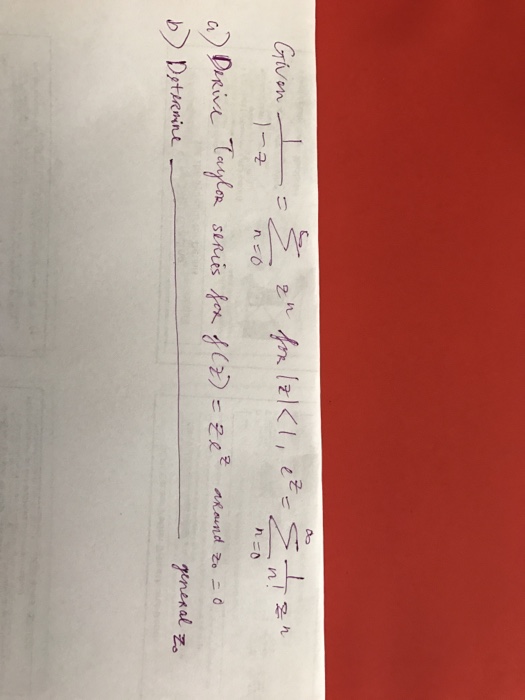 Given 1/(1-z) = ∑_{n=0}^{∞} z^n for |z|<1, e^z = ∑_{n=0}^{∞} 1/n! z^n
a) Derive Taylor series for f(z) = z e^z around z₀ = 0
b) Determine ———————— general z₀